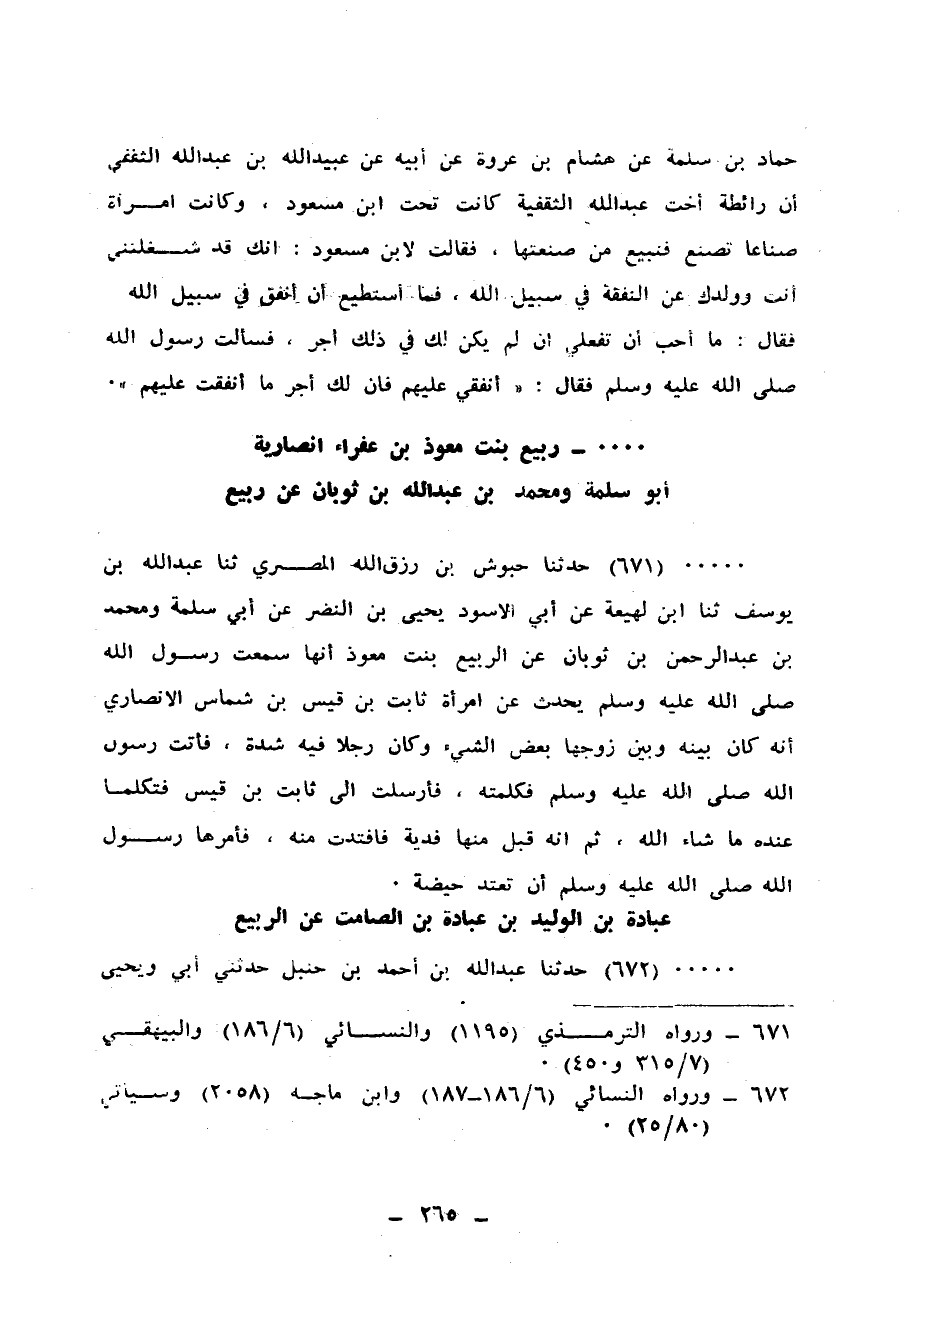 حماد بن سلمة عن هشام بن عروة عن أبيه عن عبيدالله بن عبدالله الثقفي
أن رائطة أخت عبدالله الثقفية كانت تحت ابن مسعود ، وكانت امرأة
صناعا تصنع فتبيع من صنعتها ، فقالت لابن مسعود : انك قد شغلتني
أنت وولدك عن النفقة في سبيل الله ، فما أستطيع أن أنفق في سبيل الله
فقال : ما أحب أن تفعلي ان لم يكن لك في ذلك أجر ، فسألت رسول الله
صلى الله عليه وسلم فقال : « أنفقي عليهم فان لك أجر ما أنفقت عليهم »٠
٠٠٠٠ ـ ربيع بنت معوذ بن عفراء انصارية
أبو سلمة ومحمد بن عبدالله بن ثوبان عن ربيع
٠٠٠٠٠ (٦٧١) حدثنا حبوش بن رزق‌الله المصري ثنا عبدالله بن
يوسف ثنا ابن لهيعة عن أبي الاسود يحيى بن النضر عن أبي سلمة ومحمد
بن عبدالرحمن بن ثوبان عن الربيع بنت معوذ أنها سمعت رسول الله
صلى الله عليه وسلم يحدث عن امرأة ثابت بن قيس بن شماس الانصاري
أنه كان بينه وبين زوجها بعض الشيء وكان رجلا فيه شدة ، فأتت رسول
الله صلى الله عليه وسلم فكلمته ، فأرسلت الى ثابت بن قيس فتكلما
عنده ما شاء الله ، ثم انه قبل منها فدية فافتدت منه ، فأمرها رسول
الله صلى الله عليه وسلم أن تعتد حيضة ٠
عبادة بن الوليد بن عبادة بن الصامت عن الربيع
٠٠٠٠٠ (٦٧٢) حدثنا عبدالله بن أحمد بن حنبل حدثني أبي ويحيى
٦٧١ ـ ورواه الترمذي (١١٩٥) والنسائي (١٨٦/٦) والبيهقي
(٣١٥/٧ و٤٥٠) ٠
٦٧٢ ـ ورواه النسائي (١٨٦/٦ـ١٨٧) وابن ماجه (٢٠٥٨) وسيأتي
(٢٥/٨٠) ٠
ـ ٢٦٥ ـ